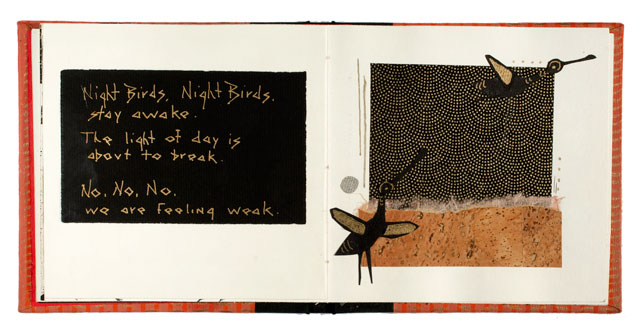 Night Birds, Night Birds,
stay awake.
The light of day is
about to break.
No, No, No.
we are feeling weak.